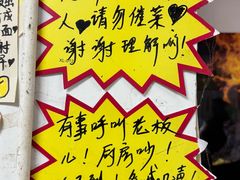 人，请勿催菜
谢谢理解啊！
有事呼叫老板
儿！厨房吵！